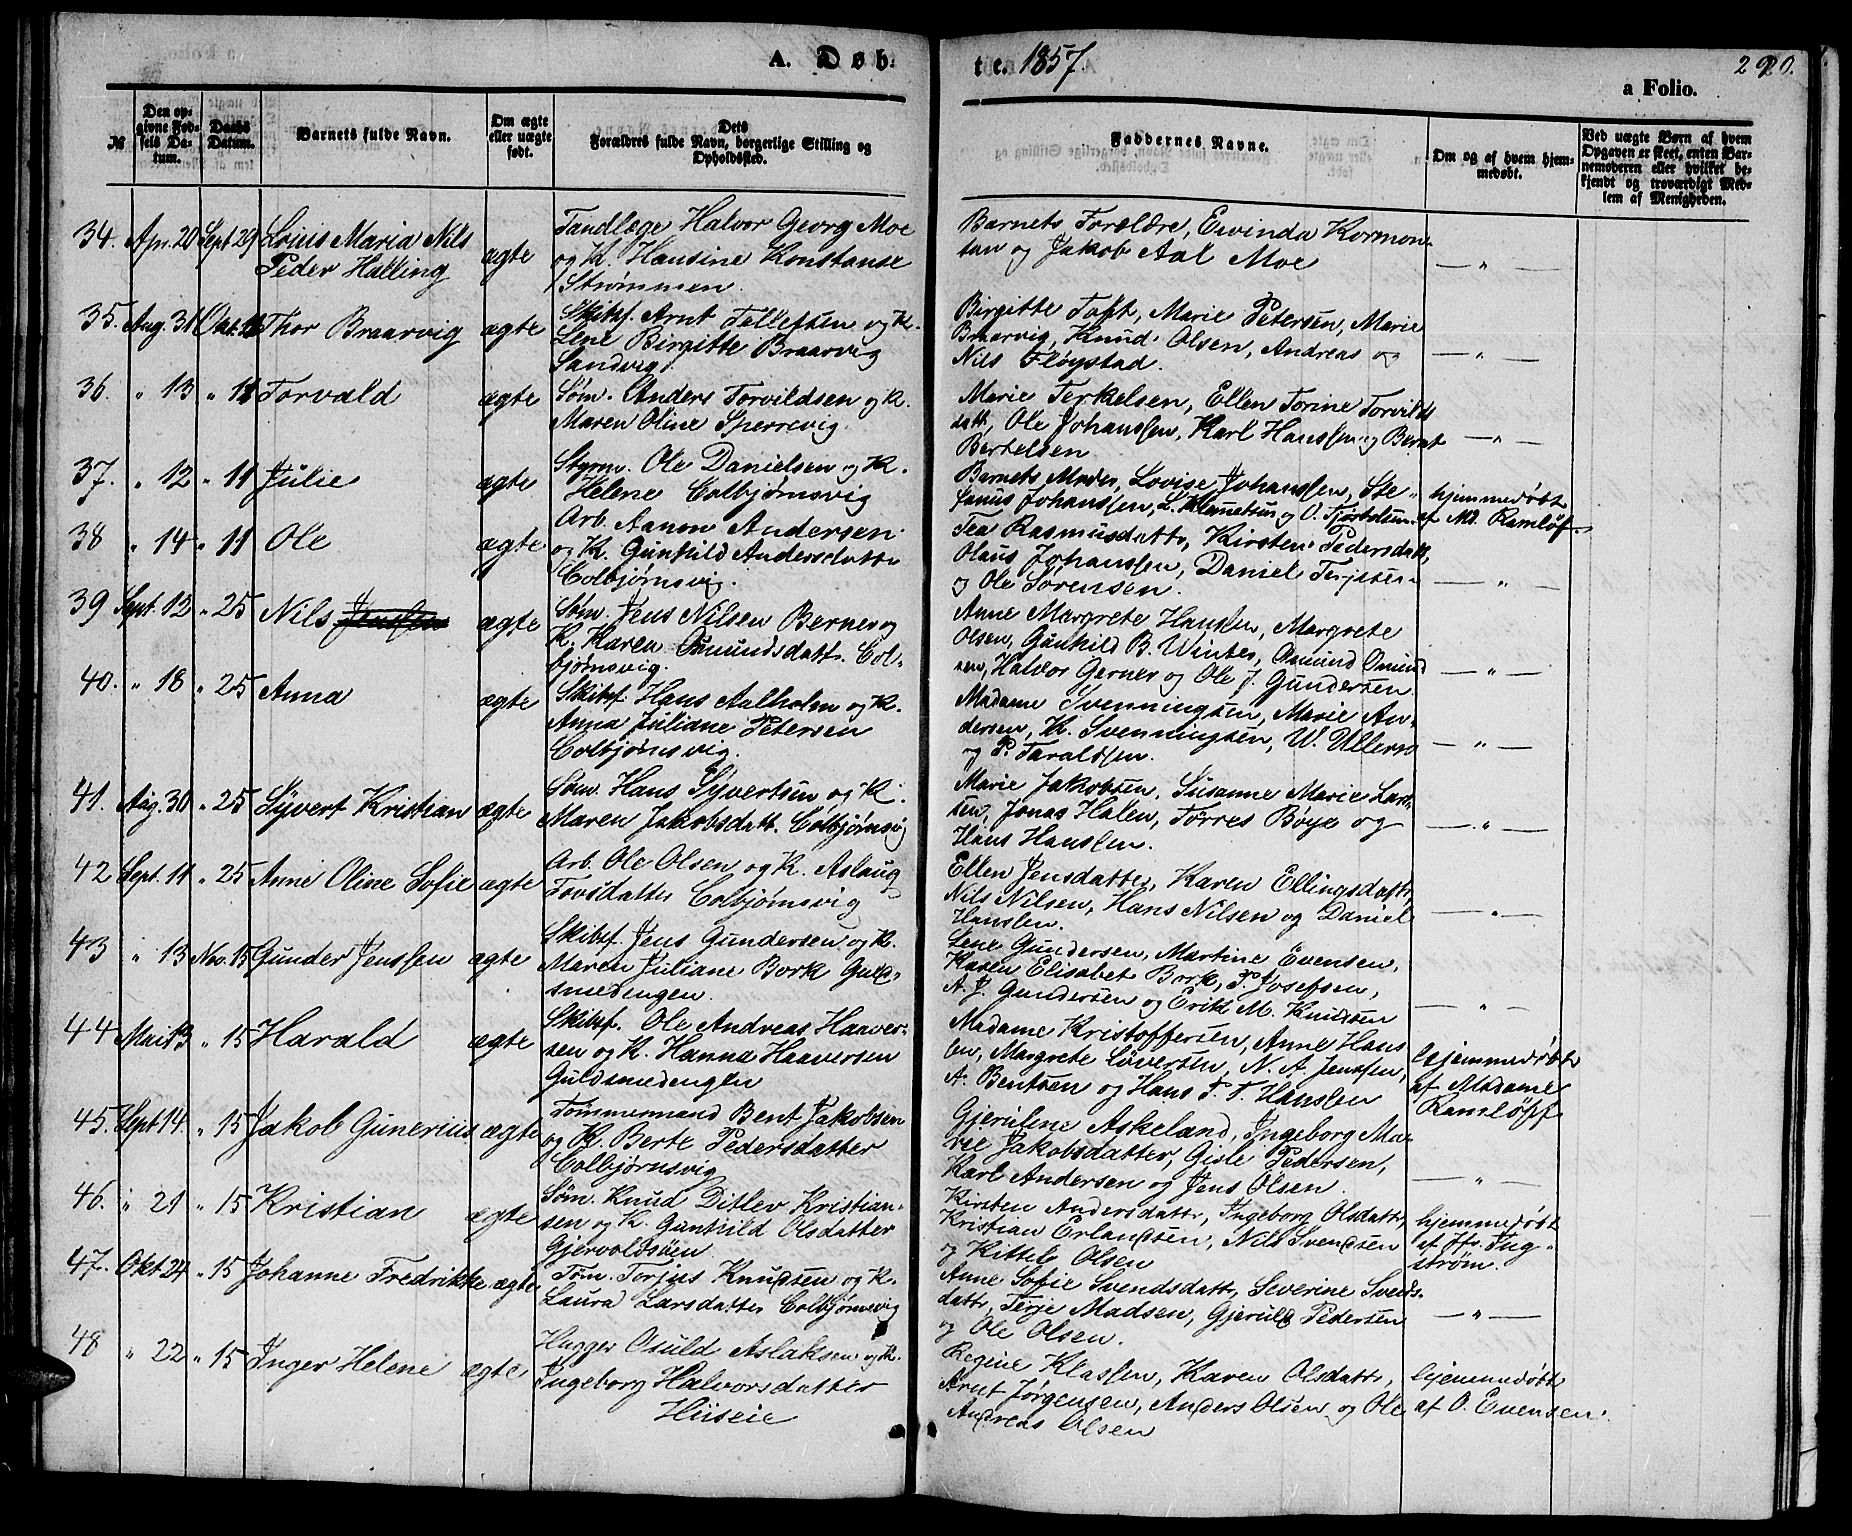 A. Døb:
te. 1857.
290.
a Folio.
№
Den opgivne Fødsels Datum.
Daabs Datum.
Barnets fulde Navn.
Om ægte eller uægte født.
Dets Forældres fulde Navn, borgerlige Stilling og Opholdssted.
Faddernes Navne.
Om og af hvem hjemmedøbt.
Ved uægte Børn af hvem Opgaven er skeet, enten Barnemoderen eller hvilket bekjendt og troværdigt Medlem af Menigheden.
34. Apr. 20 Sept 29 Loius Maria Nils
Peder Halling
ægte
Tandlæge Halvor Georg Moe
og K. Hansine Konstanse
Strømmen.
Barnets Forældre, Eivinda Kormon
tan og Jakob Aal Moe
— " —
35. Aug. 31 Okt. Thor Braarvig ægte
Skibsf. Arnt Tellefsen og K.
Lene Birgitte Braarvig
Sandvig.
Birgitte Toft, Marie Petersen, Marie
Braarvig, Knud Olsen, Andreas og
Nils Fløystad.
— " —
36. " 13 " 11 Torvald ægte
Søm. Anders Torvildsen og K.
Maren Oline Sperrevig.
Marie Terkelsen, Ellen Torine Torvilds
datt, Ole Johanssen, Karl Hanssen og Bernt
Bertelsen
— " —
37. " 12 " 11 Julie ægte
Styrm. Ole Danielsen og K.
Helene Colbjørnsvig
Barnets Moder, Lovise Johanssen, Ste-
fanus Johanssen, L. Klemetsen og O.
hjemmedøbt
af Md. Ramløf.
38 " 14 " 11 Ole ægte
Arb. Aanon Andersen
og K. Gunhild Andersdatter
Colbjørnsvig.
Tea Rasmusdatter, Kirsten Pedersdatt,
Olaus Johanssen, Daniel Terjesen
og Ole Sørensen.
— " —
39 Sept. 12 " 25 Nils Jenssen ægte
Søm. Jens Nilsen Berner og
K. Karen Omundsdatt. Col-
bjørnsvig.
Anne Margrete Hanssen, Margrete
Olsen, Gunhild B. Winter, Omund Omund
sen, Halvor Gerner og Ole J. Gundersen.
— " —
40. " 18 " 25 Anna ægte
Skibsf. Hans Aalholm og K.
Anna Juliane Petersen
Colbjørnsvig.
Madame Svenningsen, Marie An-
dersen, K. Svenningsen, W. Ullern
og P. Taraldsen.
— " —
41. Aug. 30 " 25 Syvert Kristian ægte
Søm. Hans Syvertsen og K.
Maren Jakobsdatt. Colbjørnsvig
Marie Jakobsen, Susanne Marie Lars
sen, Jonas Halen, Torres Bøye og
Hans Hanssen.
— " —
42 Sept. 11 " 25 Anne Oline Sofie ægte
Arb. Ole Olsen og K. Aslaug
Tovsdatter Colbjørnsvig
Ellen Jensdatter, Karen Ellingsdatt,
Nils Nilsen, Hans Nilsen og Daniel
Hanssen.
— " —
43 " 13 Nov. 15 Gunder Jenssen ægte
Skibsf. Jens Gundersen og K.
Maren Juliane Bork Guld-
smedengen.
Lene Gundersen, Martine Evensen,
Karen Elisabet Bork, P. Josefsen,
A. J. Gundersen og Erik M. Knudsen
— " —
44 Mai 13 " 15 Harald ægte
Skibsf. Ole Andreas Haaver-
sen og K. Hanna Haaversen
Guldsmedengen
Madame Kristoffersen, Anne Hans
sen, Margrete Syversen, N. A. Jenssen,
A. Bentsen og Hans P. T. Hanssen
hjemmedøbt
af Madame
Ramløff
45. Sept 14. " 15 Jakob Gunerius ægte
Tømmermand Bent Jakobsen
og K. Berte Pedersdatter
Colbjørnsvig
Gjerulene Askeland, Ingeborg Ma-
rie Jakobsdatter, Gisle Pedersen,
Karl Andersen og Jens Olsen.
— " —
46. " 21 " 15 Kristian ægte
Søm. Knud Ditlev Kristian-
sen og K. Gunhild Olsdatter
Gjervoldsøen
Kirsten Andersdatt, Ingeborg Olsdatt,
Kristian Erlandsen, Nils Svendsen
og Kittel Olsen
hjemmedøbt
af Jfr. Ing-
strøm.
47. Okt. 24 " 15 Johanne Fredrikke ægte
Tøm. Torjus Knudsen og K.
Laura Larsdatter Colbjørnsvig
Anne Sofie Svendsdatt, Severine Svends
datt, Terje Madsen, Gjeruld Pedersen
og Ole Olsen.
— " —
48 " 22 " 15 Inger Helene ægte
Hugger Osuld Aslaksen og K.
Ingeborg Halvorsdatter
Hiiseie
Regine Klassen, Karen Olsdatt,
Arnt Jørgensen, Anders Olsen og Ole
Andreas Olsen
hjemmedøbt
af O. Evensen.